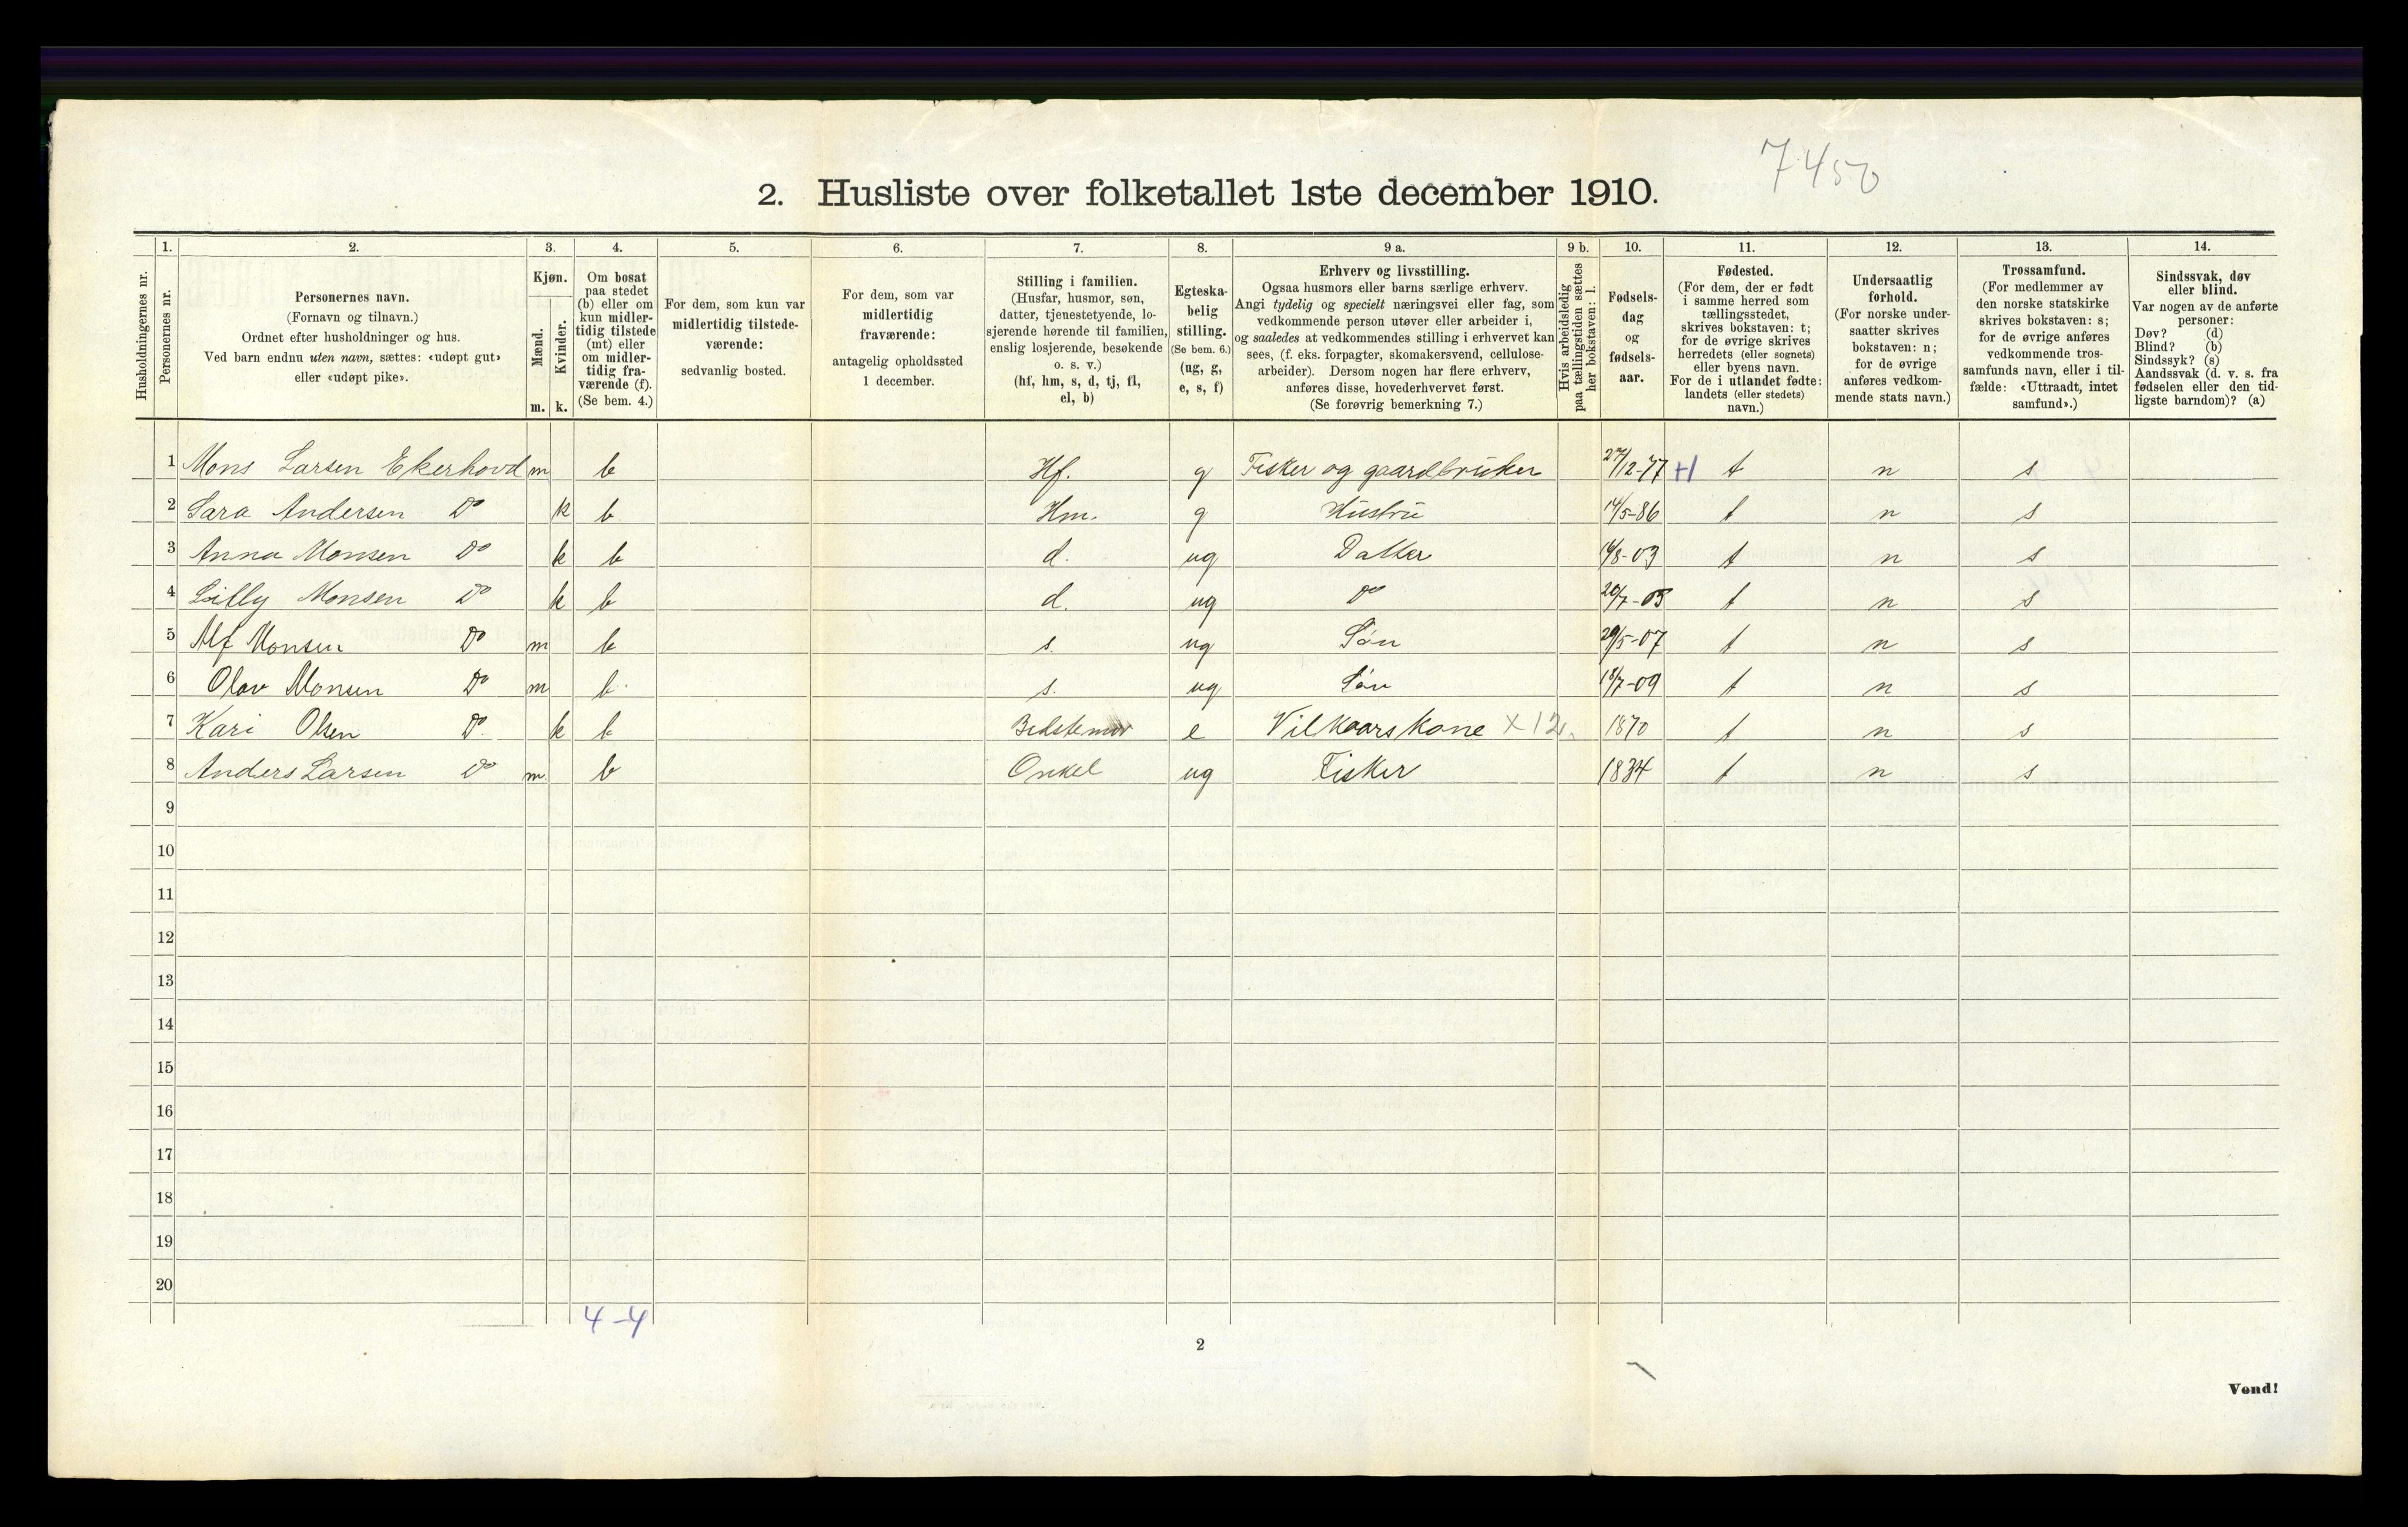 7450
2. Husliste over folketallet 1ste december 1910.
Husholdningernes nr.
1.
Personernes nr.
2.
Personernes navn.
(Fornavn og tilnavn.)
Ordnet efter husholdninger og hus.
Ved barn endnu uten navn, sættes: «udøpt gut»
eller «udøpt pike».
3.
Kjøn.
Mænd.
m.
Kvinder.
k.
4.
Om bosat
paa stedet
(b) eller om
kun midler-
tidig tilstede
(mt) eller
om midler-
tidig fra-
værende (f).
(Se bem. 4.)
5.
For dem, som kun var
midlertidig tilstede-
værende:
sedvanlig bosted.
6.
For dem, som var
midlertidig
fraværende:
antagelig opholdssted
1 december.
7.
Stilling i familien.
(Husfar, husmor, søn,
datter, tjenestetyende, lo-
sjerende hørende til familien,
enslig losjerende, besøkende
o. s. v.)
(hf, hm, s, d, tj, fl,
el, b)
8.
Egteska-
belig
stilling.
(Se bem. 6.)
(ug, g,
e, s, f)
9 a.
Erhverv og livsstilling.
Ogsaa husmors eller barns særlige erhverv.
Angi tydelig og specielt næringsvei eller fag, som
vedkommende person utøver eller arbeider i,
og saaledes at vedkommendes stilling i erhvervet kan
sees, (f. eks. forpagter, skomakersvend, cellulose-
arbeider). Dersom nogen har flere erhverv,
anføres disse, hovederhvervet først.
(Se forøvrig bemerkning 7.)
9 b.
Hvis arbeidsledig
paa tællingstiden sættes
her bokstaven: l.
10.
Fødsels-
dag
og
fødsels-
aar.
11.
Fødested.
(For dem, der er født
i samme herred som
tællingsstedet,
skrives bokstaven: t;
for de øvrige skrives
herredets (eller sognets)
eller byens navn.
For de i utlandet fødte:
landets (eller stedets)
navn.)
12.
Undersaatlig
forhold.
(For norske under-
saatter skrives
bokstaven: n;
for de øvrige
anføres vedkom-
mende stats navn.)
13.
Trossamfund.
(For medlemmer av
den norske statskirke
skrives bokstaven: s;
for de øvrige anføres
vedkommende tros-
samfunds navn, eller i til-
fælde: «Uttraadt, intet
samfund».)
14.
Sindssvak, døv
eller blind.
Var nogen av de anførte
personer:
Døv? (d)
Blind? (b)
Sindssyk? (s)
Aandssvak (d. v. s. fra
fødselen eller den tid-
ligste barndom)? (a)
1 Mons Larsen Ekerhovd m b Hf. g Fisker og gaardbruker 27/12-77 +1 t n s
2 Sara Andersen Do k b Hm. g Hustru 14/5-86 t n s
3 Anna Monsen Do k b d. ug Datter 14/8-03 t n s
4 Lilly Monsen Do k b d. ug Do 20/7-05 t n s
5 Alf Monsen Do m b s. ug Søn 29/5-07 t n s
6 Olav Monsen Do m b s. ug Søn 18/7-09 t n s
7 Kari Olsen Do k b Bedstemor e Vilkaarskone X12. 1870 t n s
8 Anders Larsen Do m b Onkel ug Fisker 1834 t n s
9
10
11
12
13
14
15
16
17
18
19
20
4-4
2
Vend!